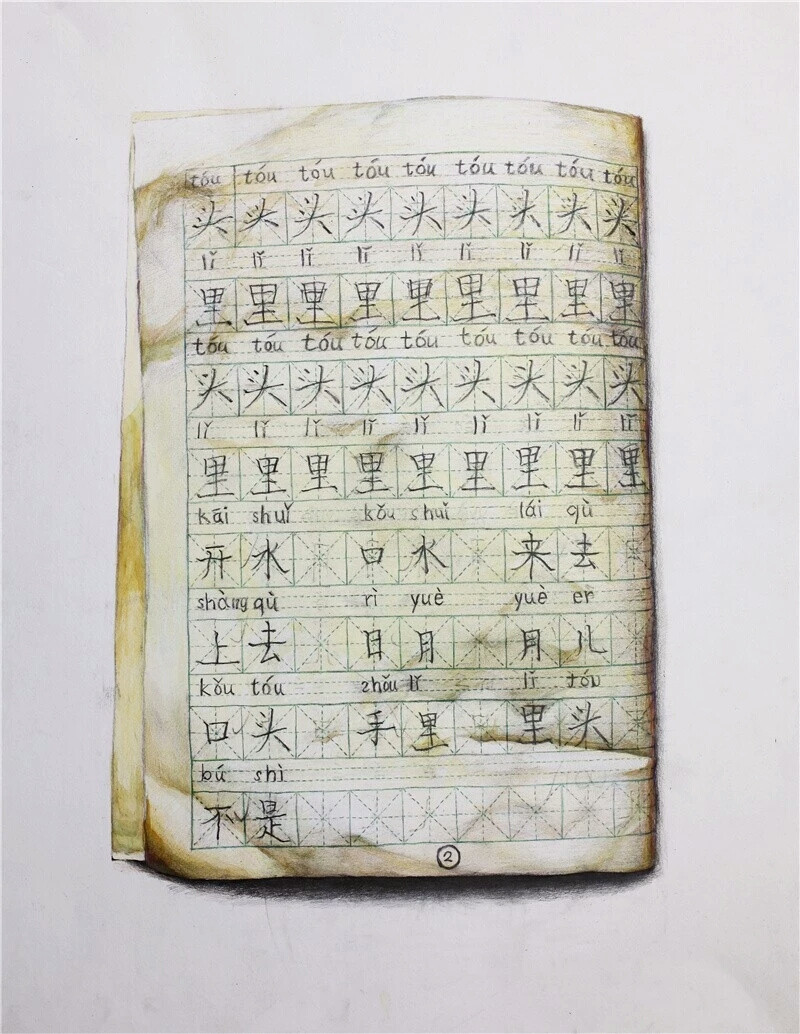 tóu tóu tóu tóu tóu tóu tóu tóu tóu
头头头头头头头头头
lǐ lǐ lǐ lǐ lǐ lǐ lǐ lǐ lǐ
里里里里里里里里里
tóu tóu tóu tóu tóu tóu tóu tóu tóu
头头头头头头头头头
lǐ lǐ lǐ lǐ lǐ lǐ lǐ lǐ lǐ
里里里里里里里里里
kāi shuǐ kǒu shuǐ lái qù
开水 口水 来去
shàng qù rì yuè yuè er
上去 日月 月儿
kǒu tóu zhǒu lǐ lǐ tóu
口头 手里 里头
bú shì
不是
2